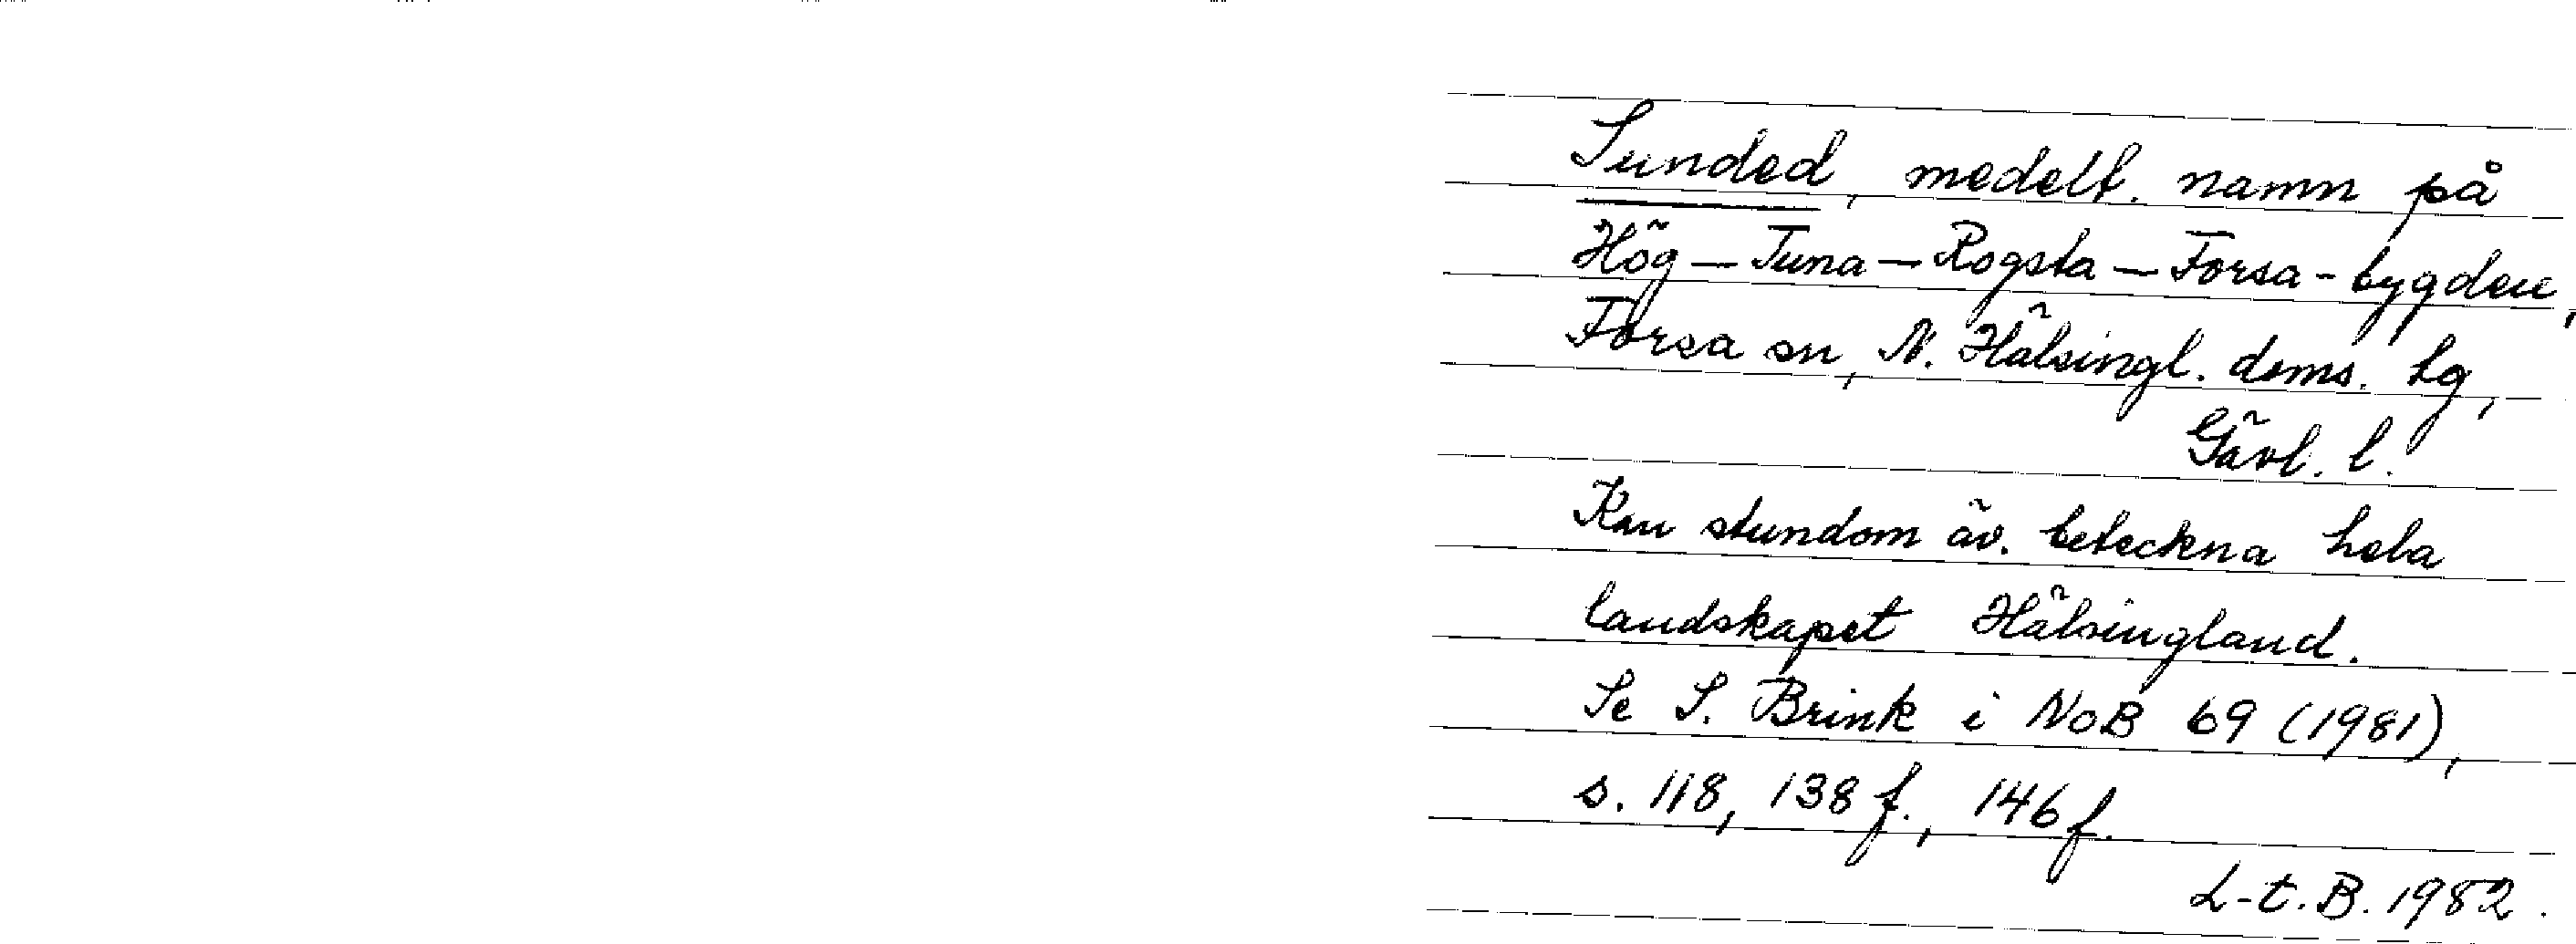 Sunded, medelt. namn på
Hög – Tuna – Rogsta – Forsa-bygden,
Forsa sn, N. Hälsingl. doms. tg,
Gävl. l.
Kan stundom äv. beteckna hela
landskapet Hälsingland.
Se S. Brink i NoB 69 (1981),
s. 118, 138 f., 146 f.
L-t. B. 1982.